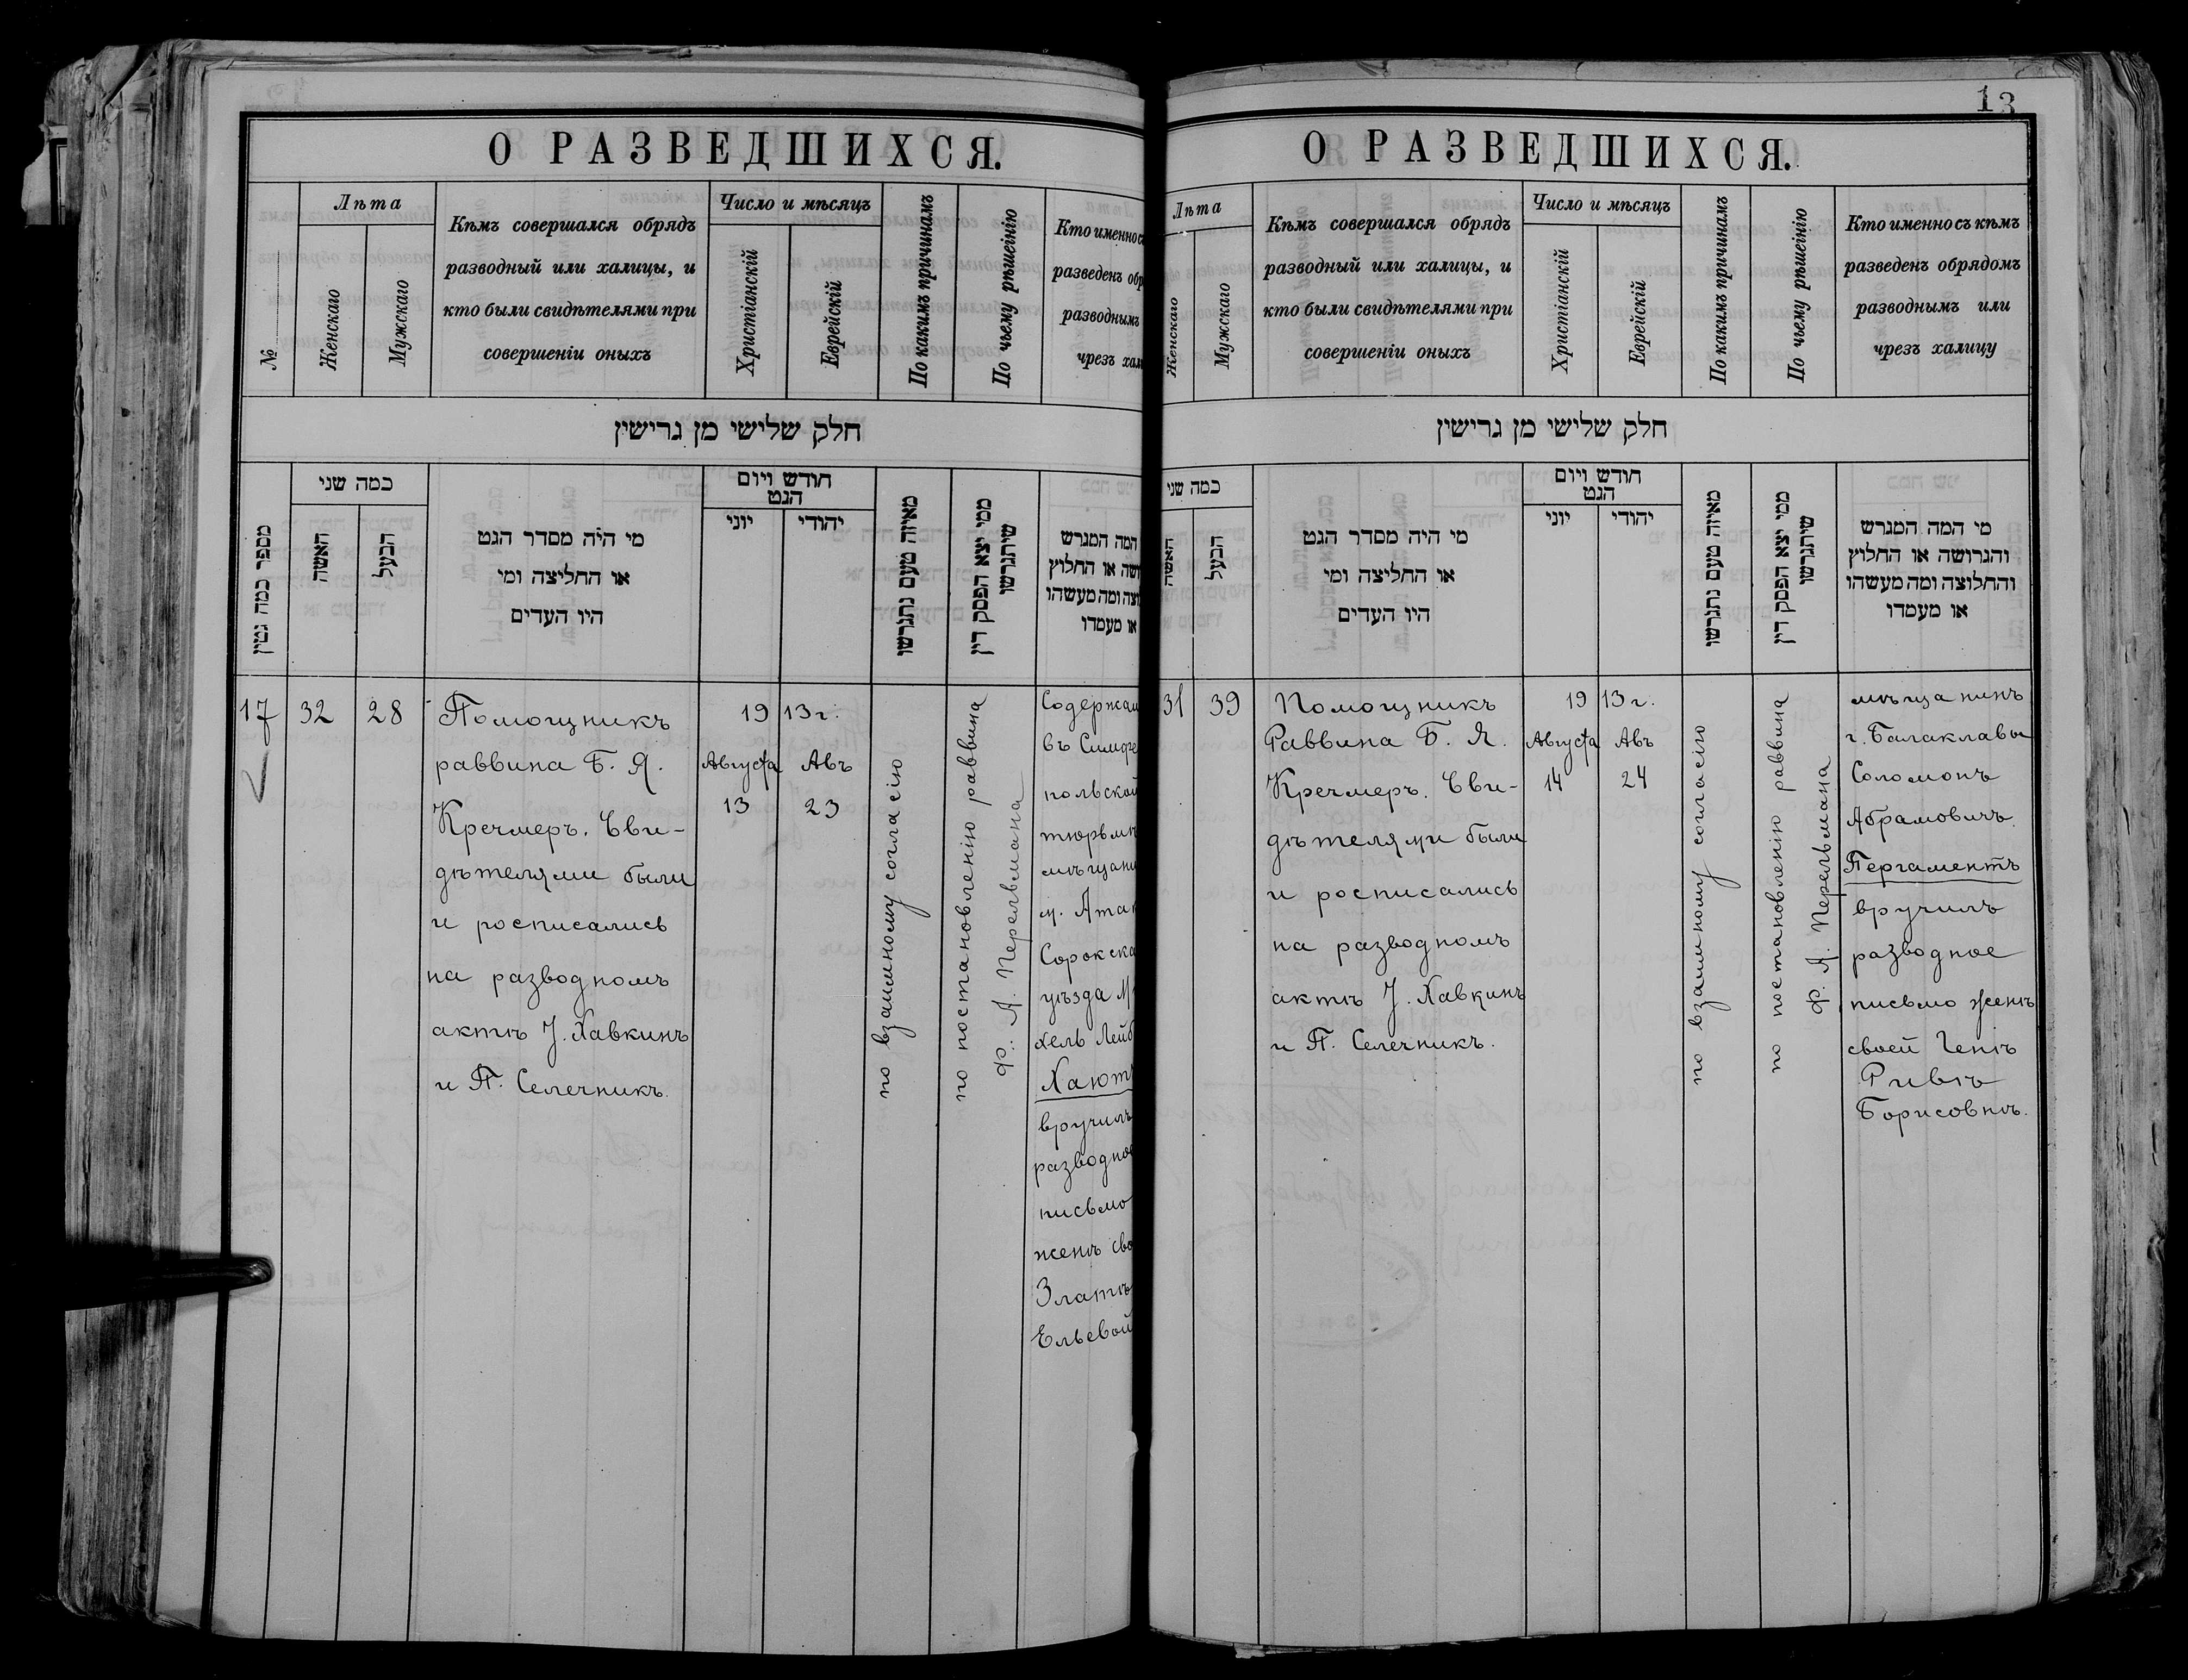 О РАЗВЕДШИХСЯ.
№
Лѣта
Женскаго
Мужскаго
Кѣмъ совершался обрядъ
разводный или халицы, и
кто были свидѣтелями при
совершеніи оныхъ
Число и мѣсяцъ
Христіанскій
Еврейскій
По какимъ причинамъ
По чьему рѣшеінію
Кто именно съ
разведенъ обр
разводнымъ
чрезъ хал
חלק שלישי מן גרישין
מספר כמה גטין
כמה שני
האשה
הבעל
מי היה מסדר הגט
או החליצה ומי
היו העדים
חודש ויום
הגט
יוני
יהודי
מאיזה טעם נתגרשו
ממי יצא הפסק דין
שיתגרשו
המה המגרש
ושה או החלוץ
וצה ומה מעשהו
או מעמדו
17
32
28
Помощникъ
раввина Б. Я.
Кречмеръ. Сви-
дѣтелями были
и росписались
на разводномъ
актѣ І. Хавкинъ
и П. Селечникъ.
1913 г.
Августа
13
Авъ
23
по взаимному согласію
по постановленію раввина
Ф. Я. Перельмана
Содержащ
въ Симфе
польской
тюрьмѣ
мѣщани
м. Атак
Сорокска
уѣзда М
хель Лейб
Хают
вручилъ
разводное
письмо
женѣ сво
Златѣ
Ельевой
13
О РАЗВЕДШИХСЯ.
Лѣта
Женскаго
Мужскаго
Кѣмъ совершался обрядъ
разводный или халицы, и
кто были свидѣтелями при
совершеніи оныхъ
Число и мѣсяцъ
Христіанскій
Еврейскій
По какимъ причинамъ
По чьему рѣшеінію
Кто именно съ кѣмъ
разведенъ обрядомъ
разводнымъ или
чрезъ халицу
חלק שלישי מן גרישין
כמה שני
האשה
הבעל
מי היה מסדר הגט
או החליצה ומי
היו העדים
חודש ויום
הגט
יוני
יהודי
מאיזה טעם נתגרשו
ממי יצא הפסק דין
שיתגרשו
מי המה המגרש
והגרושה או החלוץ
והחלוצה ומה מעשהו
או מעמדו
31
39
Помощникъ
Раввина Б. Я.
Кречмеръ. Сви-
дѣтелями были
и росписались
на разводномъ
актѣ І. Хавкинъ
и П. Селечникъ.
1913 г.
Августа
14
Авъ
24
по взаимному согласію
по постановленію раввина
Ф. Я. Перельмана
мѣщанинъ
г. Балаклавы
Соломонъ
Абрамовичъ
Пергаментъ
вручилъ
разводное
письмо женѣ
своей Генѣ
Ривкѣ
Борисовнѣ.